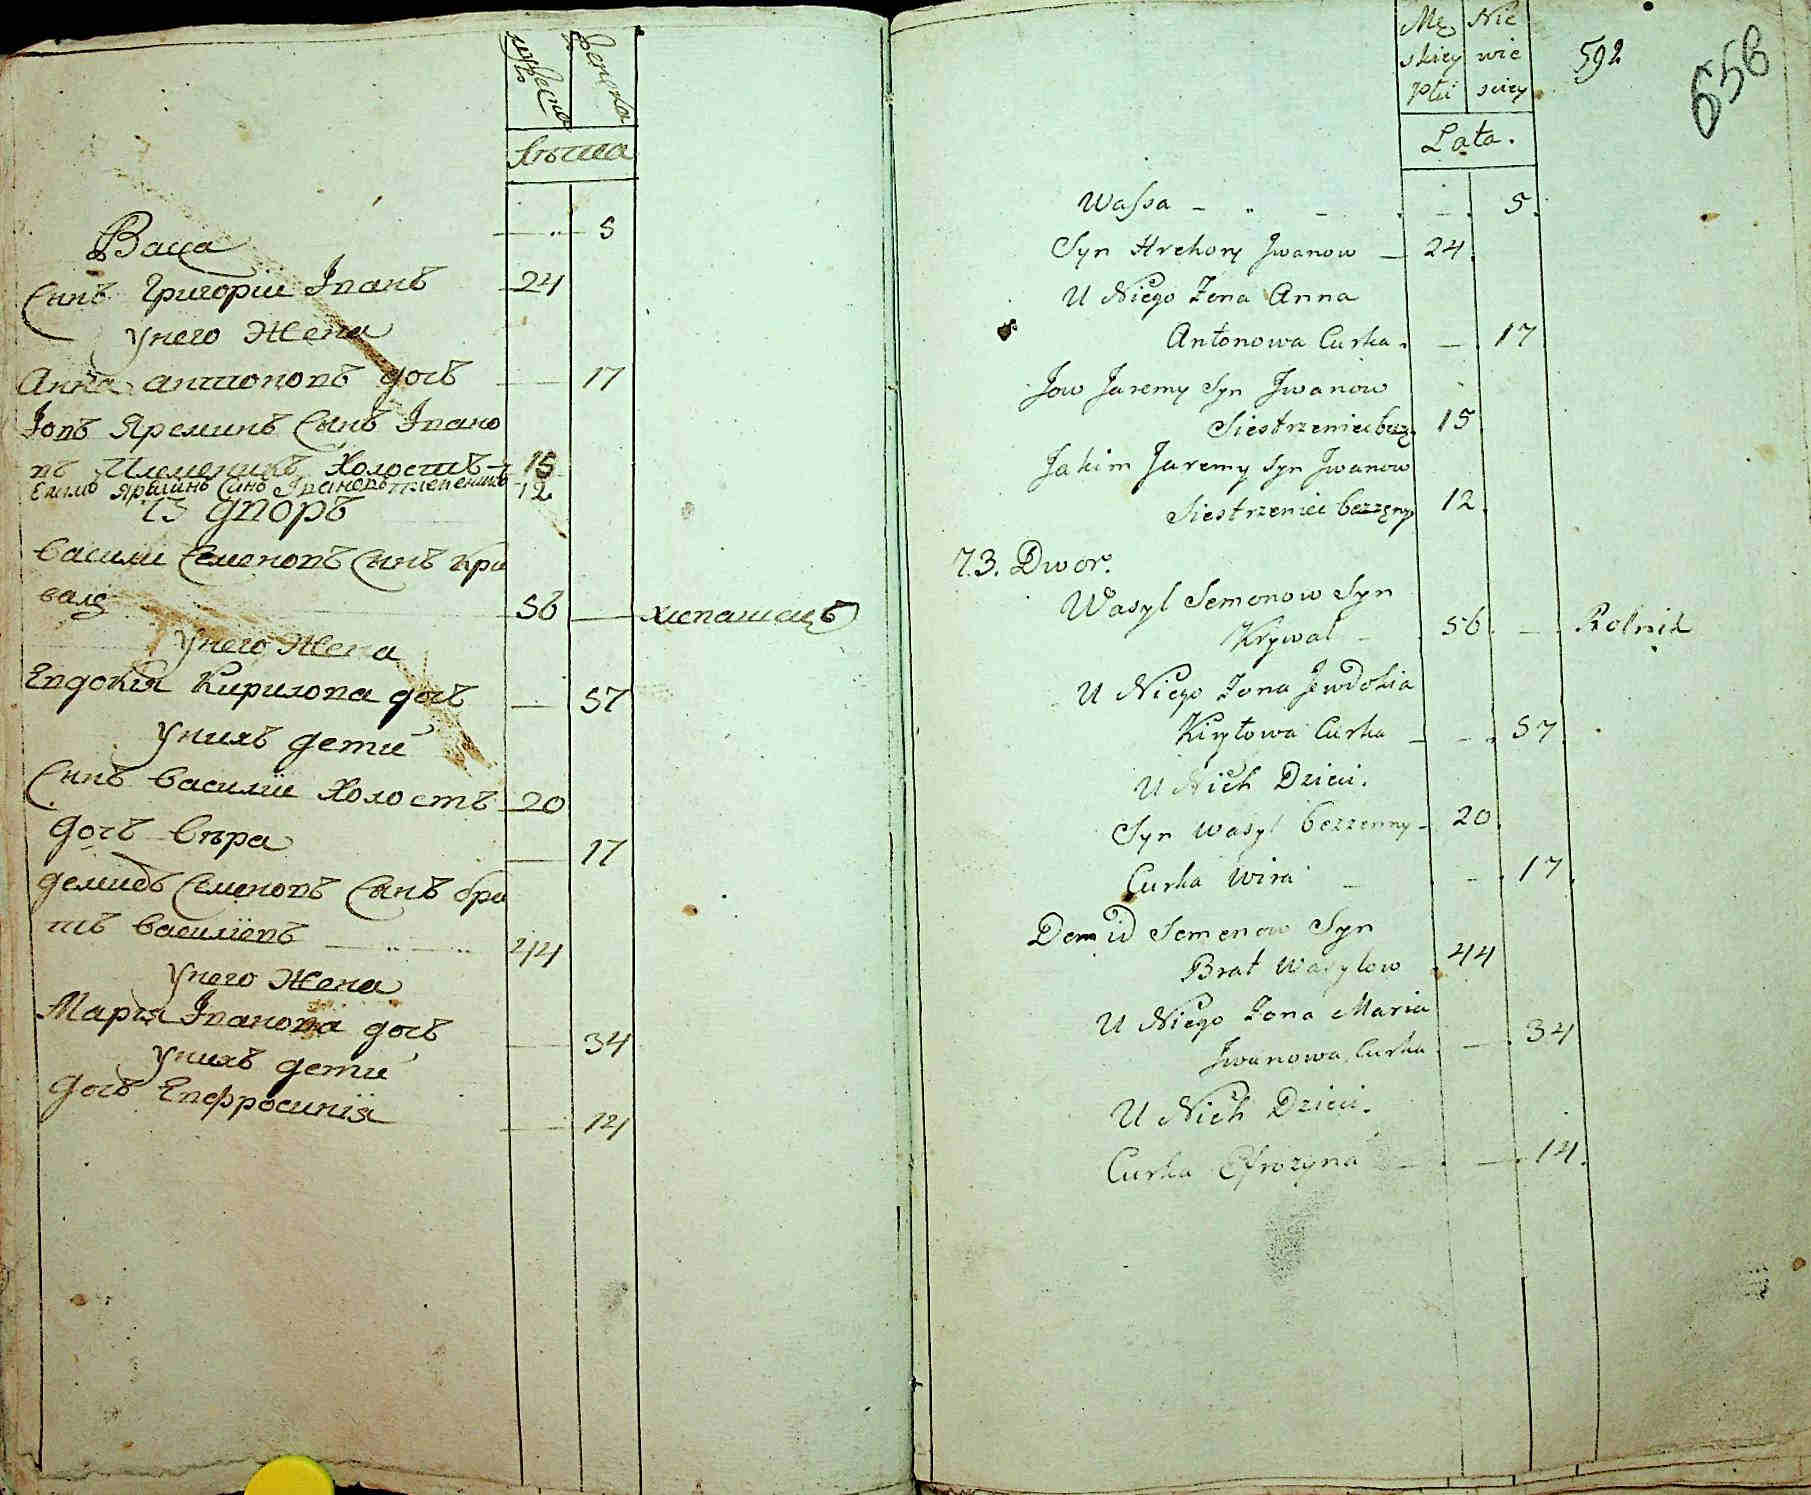 мужеска женска
лѣта
Васса — 5
Синъ Григоріи Іванъ 24
У него Жена
Анна антоновъ дочь — 17
Іовъ Яреминъ Синъ Івано
въ Племеникъ Холостъ 15
Екимъ Яреминъ Синъ Івановъ племеникъ 12
73 дворъ
Василии Семеновъ Синъ Кри
валъ 56 — хлепашецъ
У него Жена
Евдокія Кирилова дочь — 57
У нихъ дети
Синъ Василии Холостъ 20
Дочь Вѣра — 17
Демидъ Семеновъ Синъ бра
тъ Василіевъ — 44
У него Жена
Марія Іванова дочь — 34
У нихъ дети
Дочь Евфросинія — 14
Mę Nie
skiey wie
Płci sciey
592
656
Lata.
Wassa — 5.
Syn Hrehory Jwanow — 24.
U Niego Zona Anna
Antonowa Curka. — 17
Jow Jaremy Syn Jwanow
Siestrzeniec bez. 15
Jakim Jaremy Syn Jwanow
Siestrzeniec bezzęny 12.
73. Dwor.
Wasyl Semonow Syn
Krywal — 56. — Rolnik
U Niego Zona Jewdokia
Kiryłowa Curka — 57.
U Nich Dzieci.
Syn Wasyl bezzenny — 20.
Curka Wira — 17.
Demid Semenow Syn
Brat Wasylow 44
U Niego Zona Maria
Jwanowa Curka. — 34
U Nich Dzieci.
Curka Efrozyna — 14.